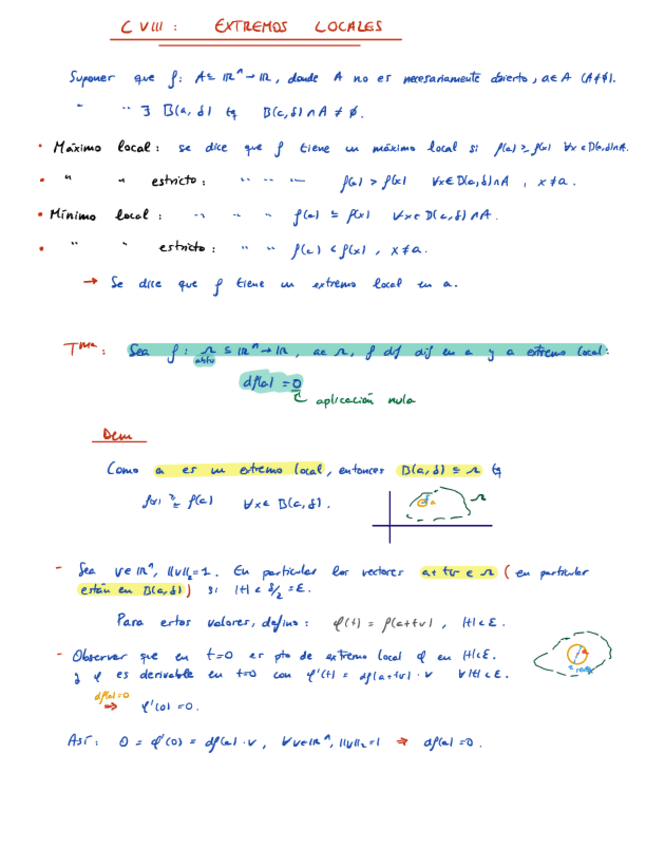 C VIII : EXTREMOS LOCALES
Suponer que f: A ⊆ ℝⁿ → ℝ, donde A no es necesariamente abierto, a ∈ A (A ≠ ∅).
" " ∃ B(a, δ) tq B(a, δ) ∩ A ≠ ∅.
• Máximo local: se dice que f tiene un máximo local si f(a) ≥ f(x) ∀x ∈ B(a,δ)∩A.
• " " estricto: " " " f(a) > f(x) ∀x ∈ B(a,δ)∩A, x ≠ a.
• Mínimo local: " " " f(a) ≤ f(x) ∀x ∈ B(a,δ)∩A.
• " " estricto: " " f(a) < f(x), x ≠ a.
→ Se dice que f tiene un extremo local en a.
Tma: Sea f: Ω ⊆ ℝⁿ → ℝ, a ∈ Ω, f dif en a y a extremo local:
abto
df(a) = 0
aplicación nula
Dem
Como a es un extremo local, entonces B(a, δ) ⊆ Ω tq
f(x) ≥ ≤ f(a) ∀x ∈ B(a, δ).
Ω
- Sea v ∈ ℝⁿ, ||v||₂ = 1. En particular los vectores a + tv ∈ Ω (en particular
están en B(a, δ)) si |t| < δ/2 = ε.
Para estos valores, defino: φ(t) = f(a+tv), |t| < ε.
- Observar que en t=0 es pto de extremo local φ en |t| < ε.
y φ es derivable en t=0 con φ'(t) = df(a+tv) · v ∀|t| < ε.
df(a)=0
⇒ φ'(0) = 0.
Así: 0 = φ'(0) = df(a) · v, ∀v ∈ ℝⁿ, ||v||₂ = 1 ⇒ df(a) = 0.